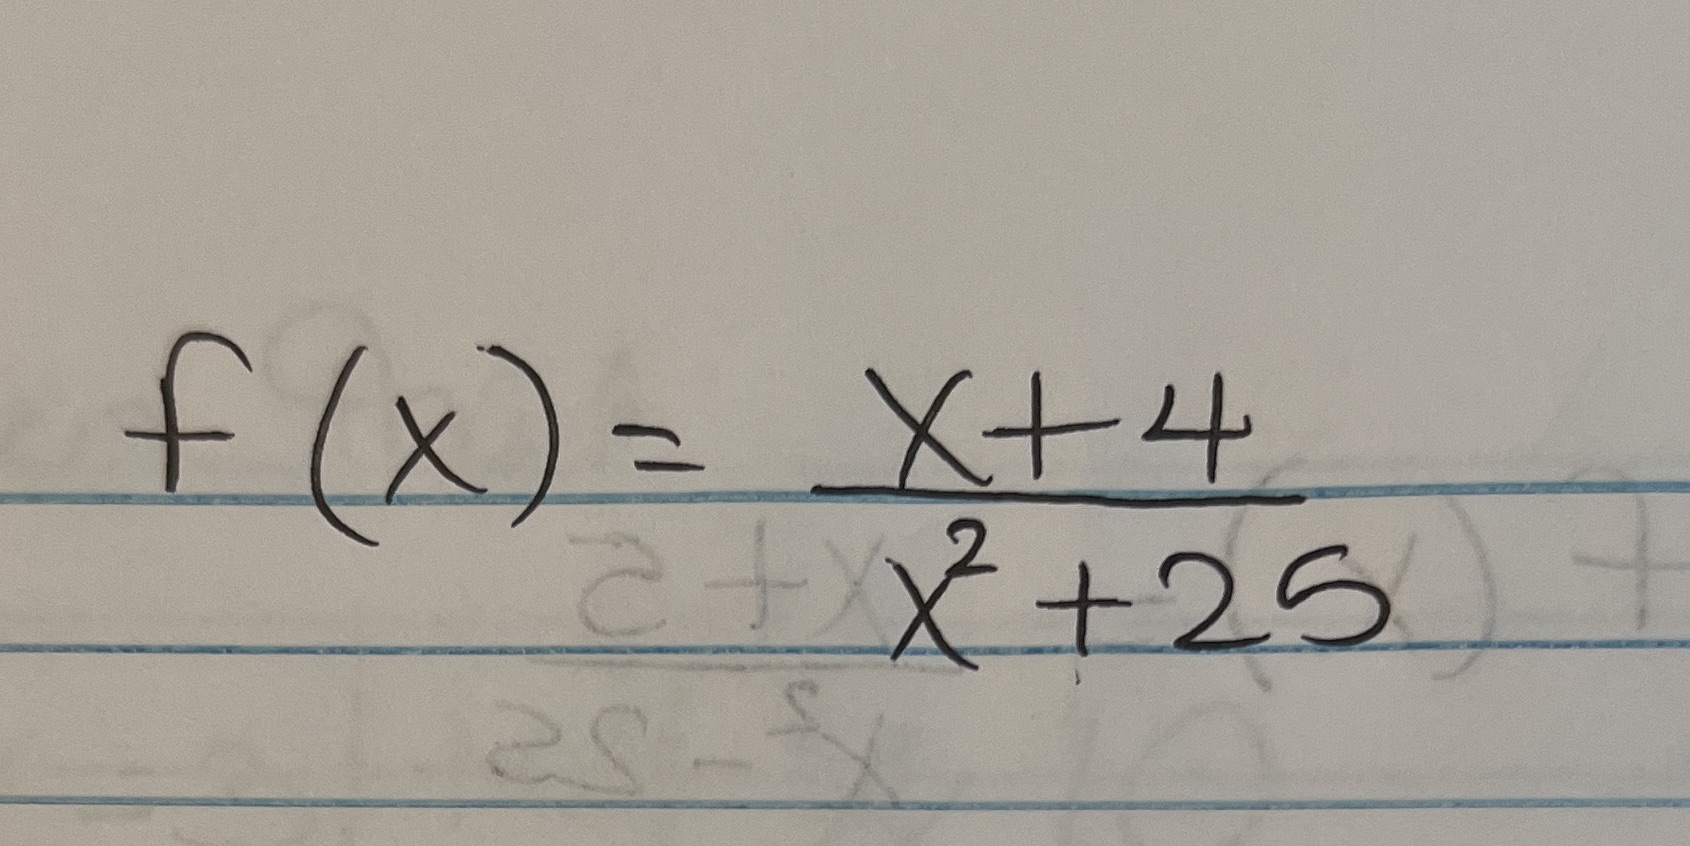 f(x) = \frac{x+4}{x^2+25}